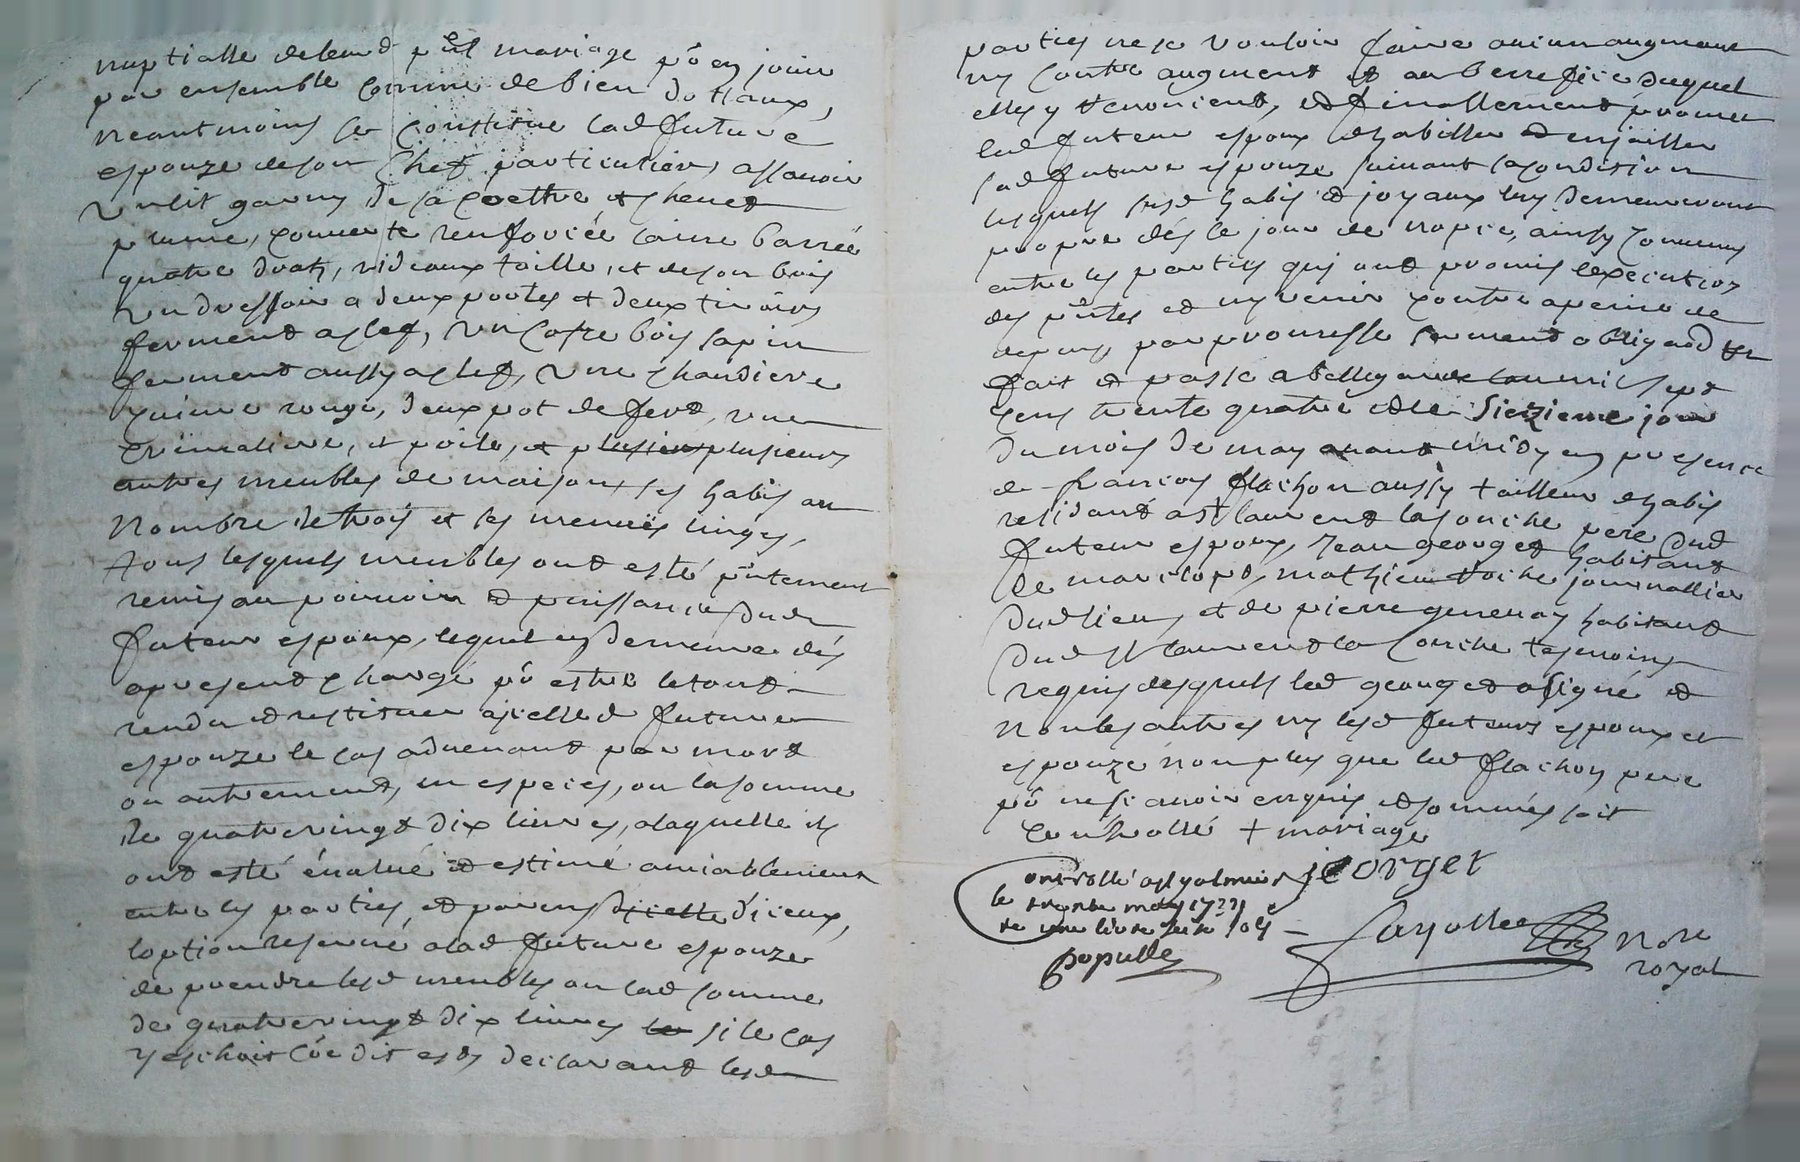 nuptialle deleurd pnt mariage pô en jouir
par ensemble comme de bien dottaux,
neantmoins se constitue lad future
espouze de son chef particulier, assavoir
un lit garny de sa coettre et chevet
plume, couverte renforcée laine barrée
quatre draps, rideaux toille, et de son bois
un dressoir a deux portes et deux tiroirs
ferment a clef, un cofre bois sapin
ferment aussy a clef, une chaudiere
cuivre rouge, deux pot de fert, une
crimaliere, et poile, et plusieurs plusieurs
autres meubles de maison, ses habis au
nombre de trois et ses menues linges,
tous lesquels meubles ont esté pntement
remis au pouvoir et puissance dud
futeur espoux, lequel en demeure dés
apresent chargé pô estre le tout
rendu et restitué a jcelle d future
espouze le cas advenant par mort
ou autrement, en especes, ou la somme
de quatrevingt dix livres, a laquelle ils
ont esté évalué et estimé amiablement
entre les parties, et parens d'icelle d'iceux,
loption reservé a lad future espouze
de prendre lesd meubles ou lad somme
de quatrevingt dix livres le si le cas
y eschoit côe dit est, declarant lesd
parties ne se vouloir faire aucun augment
ny contre augment et au benefice duquel
elles y renoncent, et finallement promet
led futeur espoux d'habiller et enjoailler
lad future espouze suivant sa condition
lesquels susd habis et joyaux luy demeureront
propre dés le jour de nopce, ainsy convenus
entre les parties qui ont promis l'execution
des pntes et ny venir contre a peine de
depens, par promesse serment obligaon &
fait et passé a Bellegarde mil sept
cens trente quatre et le Siezieme jour
du mois de may avant midy en presence
de francois flachon aussy tailleur d'habis
residant a st laurent la conche pere dud
futeur espoux, Jean georget habitant
de marclopt, mathieu journallier
dud lieu, et de pierre genevay habitant
dud st laurent la Conche tesmoins
requis desquels led georget a signé et
non les autres ny lesd futeurs espoux et
espouze non plus que led flachon pere
pô ne scavoir enquis et sommés soit
controllé + mariage
jeorget
Controllé a st galmier
le trente may 1734
re une livre seize sols
populle
Fayolle Nore
royal